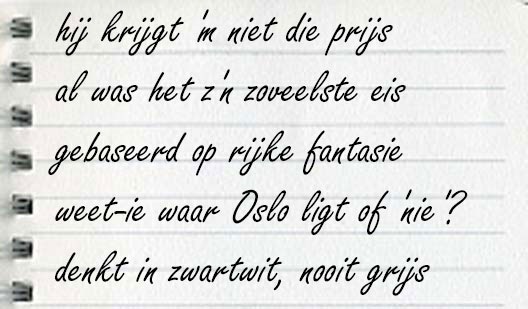 hij krijgt 'm niet die prijs
al was het z'n zoveelste eis
gebaseerd op rijke fantasie
weet-ie waar Oslo ligt of 'nie'?
denkt in zwartwit, nooit grijs